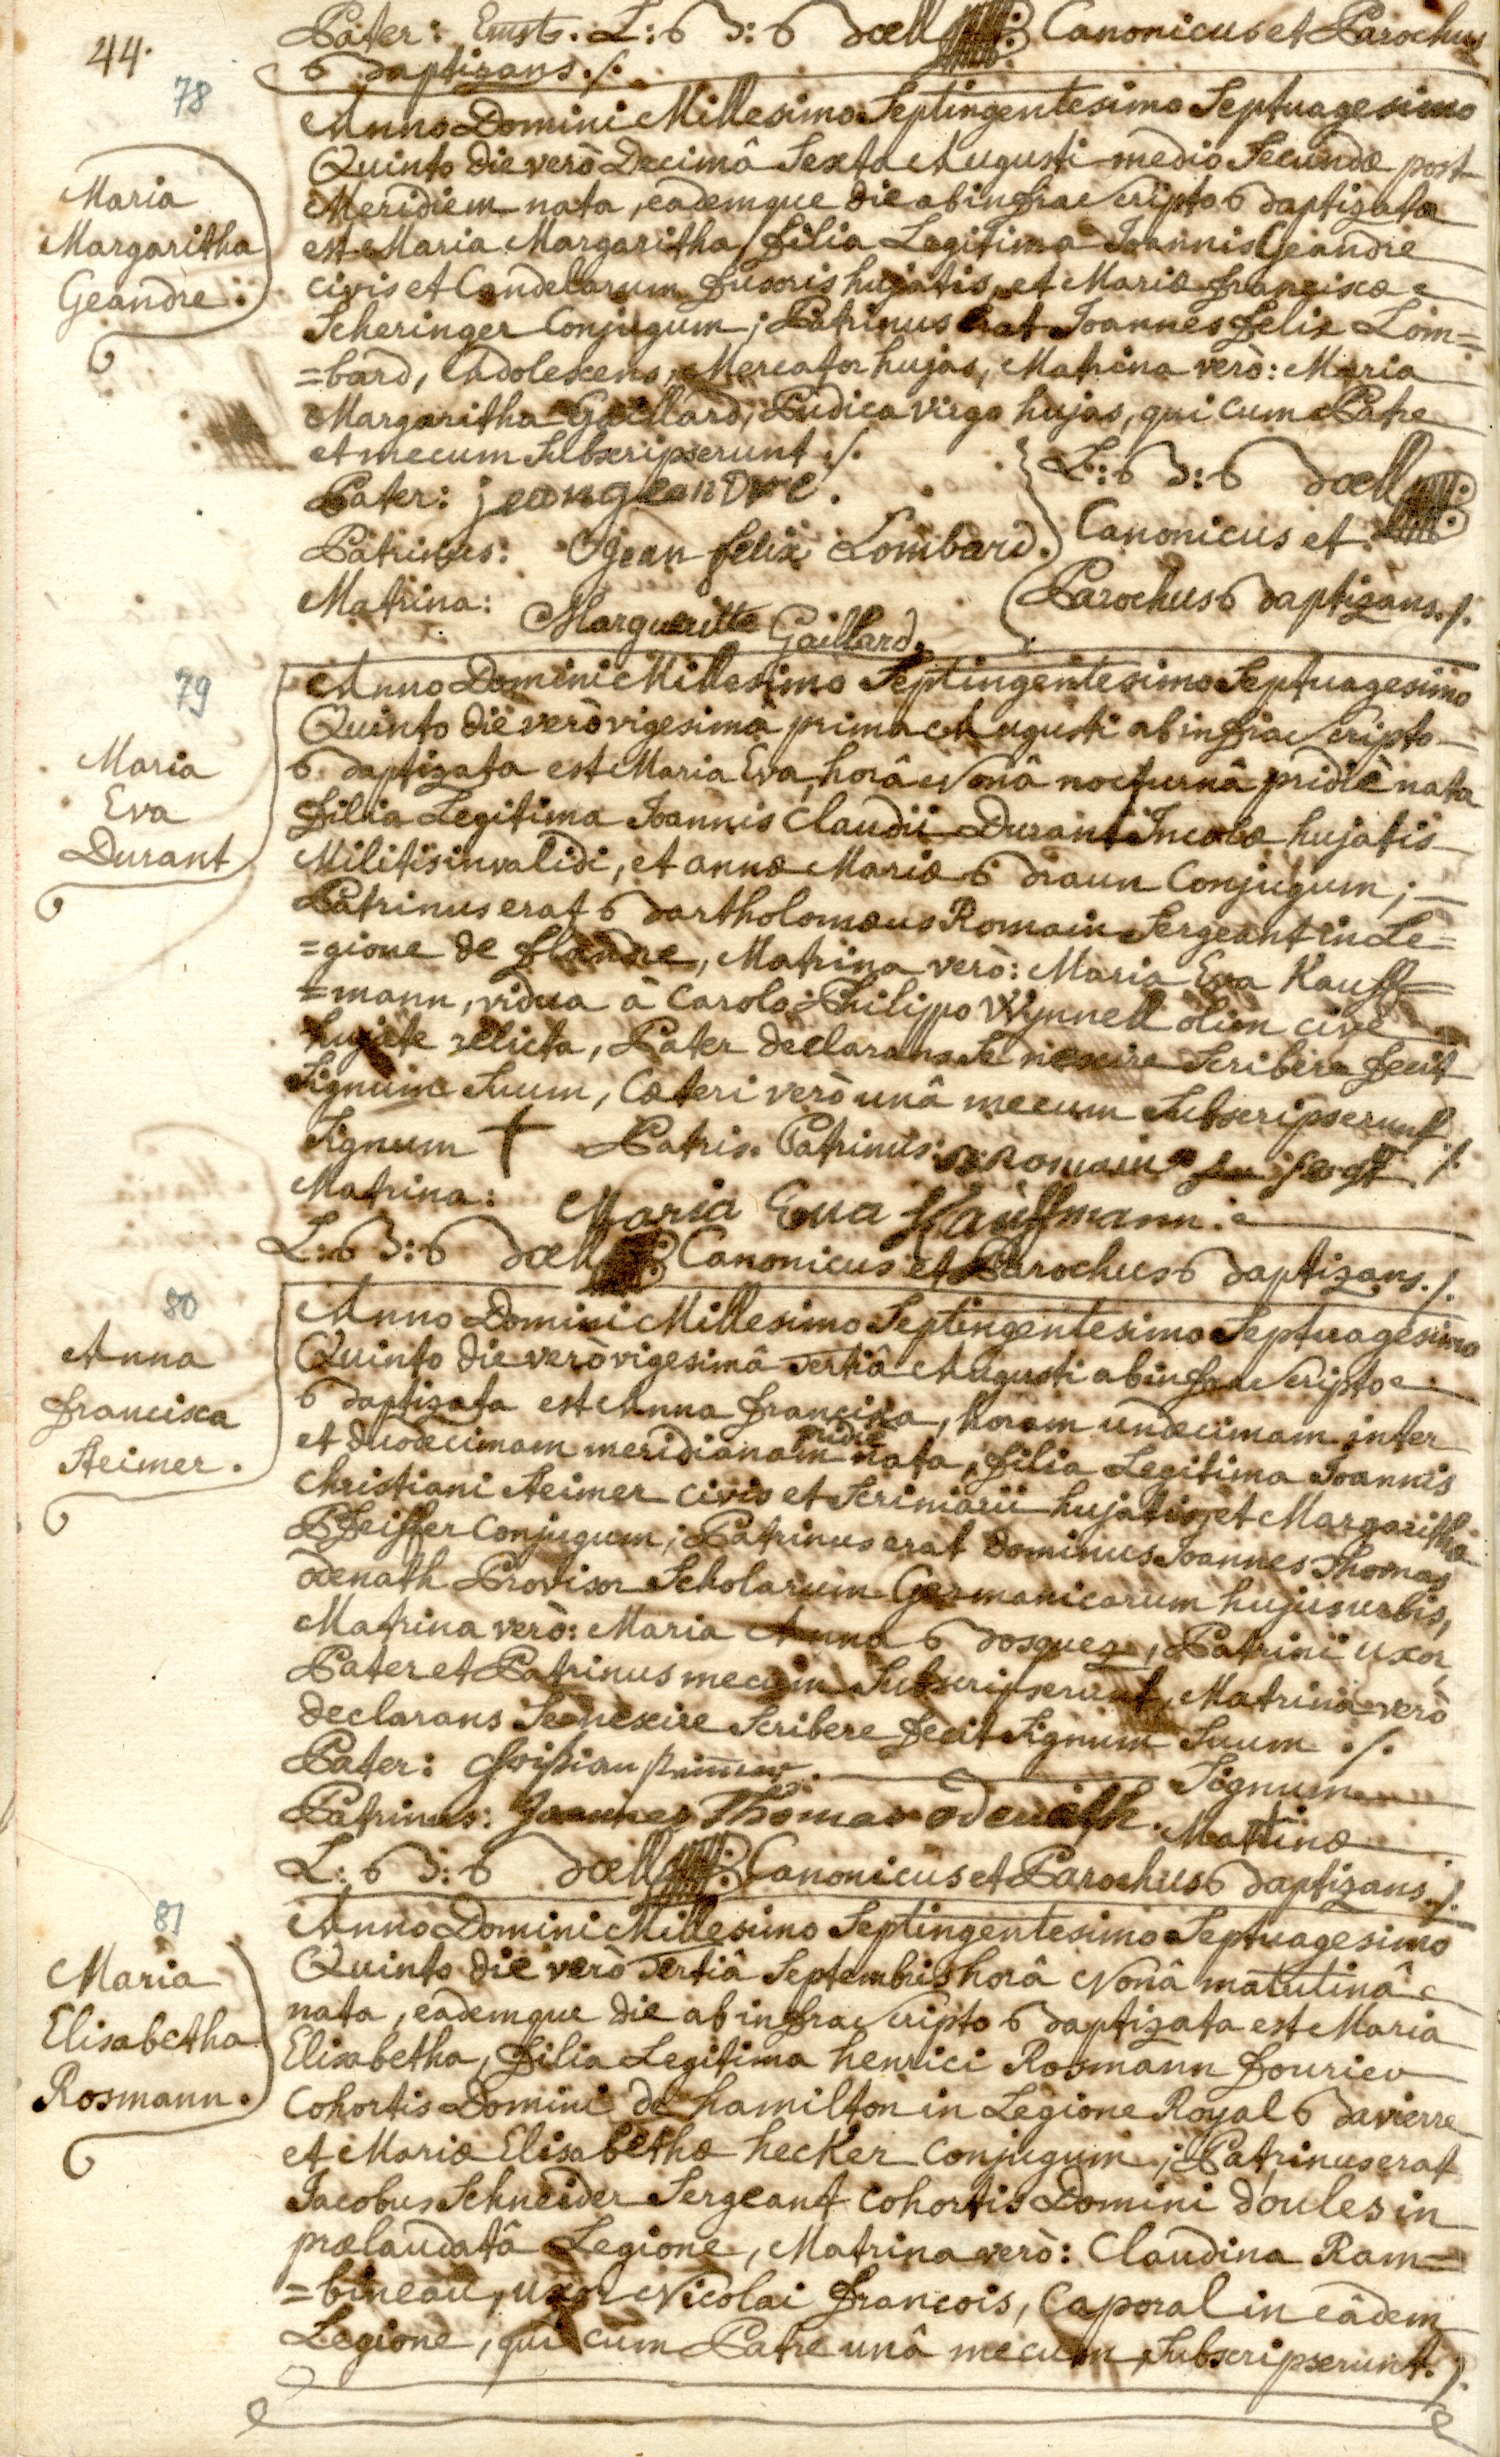 44.
Pater: Ernst. L: B: Boell Canonicus et Parochus
Baptizans ./.
78
Maria
Margaritha
Geandre.
Anno Domini Millesimo Septingentesimo Septuagesimo
Quinto die verò Decimâ Sexta Augusti medio Secundæ post
Meridiem nata, eademque die ab infra Scripto Baptizata
est Maria Margaritha, filia Legitima Joannis Geandre
civis et Candelarum fusoris hujatis, et Mariæ franciscæ
Scheringer Conjugum; Patrinus erat Joannes felix Lom=
=bard, Adolescens, Mercator hujas, Matrina verò: Maria
Margaritha Gaillard, Pudica virgo hujas, qui cum Patre
et mecum Subscripserunt ./.
Pater: jean geandre.
Patrinus: Jean felix Lombard.
Matrina: Margueritte Gaillard.
L: B: Boell
Canonicus et
Parochus Baptizans ./.
79
Maria
Eva
Durant
Anno Domini Millesimo Septingentesimo Septuagesimo
Quinto die verò vigesimâ prima Augusti ab infra Scripto
Baptizata est Maria Eva, horâ Nonâ nocturnâ pridiè nata
filia Legitima Joannis Claudii Durant Incolæ hujatis
Militis invalidi, et annæ Mariæ Braun Conjugum;
Patrinus erat Bartholomæus Romain Sergeant in Le=
=gione de flandre, Matrina verò: Maria Eva Kauff=
=mann, vidua à Carolo Philippo Wynnell olim cive
hujate relicta, Pater declarans Se nescire Scribere fecit
Signum Suum, Cæteri verò unâ mecum Subscripserunt ./.
Signum + Patris. Patrinus: B: Romain Sergt
Matrina: Maria Eva Kauffmann.
L: B: Boell Canonicus et Parochus Baptizans ./.
80
Anna
francisca
Aeimer.
Anno Domini Millesimo Septingentesimo Septuagesimo
Quinto die verò vigesimâ Tertiâ Augusti ab infra Scripto
Baptizata est Anna francisca, horam undecimam inter
et duodecimam meridianam pridiè nata, filia Legitima Joannis
Christiani Aeimer civis et Scriniarii hujatis, et Margarithæ
Pfeiffer Conjugum; Patrinus erat Dominus Joannes Thomas
odenath Provisor Scholarum Germanicarum hujus urbis,
Matrina verò: Maria Anna Bosquez, Patrini uxor,
Pater et Patrinus mecum Subscripserunt, Matrina verò
declarans Se nescire Scribere fecit Signum Suum ./.
Pater:
Patrinus: Joannes Thomas odenath.
Signum
Matrinæ
L: B: Boell Canonicus et Parochus Baptizans ./.
81
Maria
Elisabetha
Rosmann.
Anno Domini Millesimo Septingentesimo Septuagesimo
Quinto die verò Tertiâ Septembris horâ Nonâ matutinâ
nata, eademque die ab infra Scripto Baptizata est Maria
Elisabetha, filia Legitima henrici Rosmann fourier
Cohortis Domini de hamilton in Legione Royal Bavierre
et Mariæ Elisabethæ hecker Conjugum; Patrinus erat
Jacobus Schneider Sergeant Cohortis Domini Doules in
prælaudatâ Legione, Matrina verò: Claudina Ram=
=bineau, uxor Nicolai francois, Caporal in eâdem
Legione, qui cum Patre unâ mecum Subscripserunt ./.